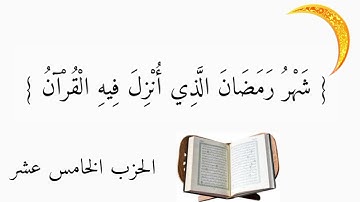 { شَهْرُ رَمَضَانَ الَّذِي أُنْزِلَ فِيهِ الْقُرْآنُ }
الحزب الخامس عشر